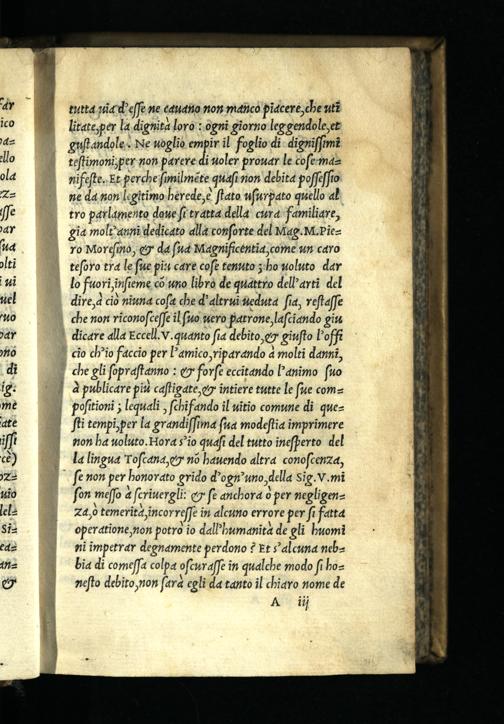 tutta uia d'esse ne cauano non manco piacere, che uti
litate, per la dignità loro : ogni giorno leggendole, et
gustandole. Ne uoglio empir il foglio di dignissimi
testimoni, per non parere di uoler prouar le cose ma=
nifeste. Et perche similmẽte quasi non debita possessio
ne da non legitimo herede, è stato usurpato quello al
tro parlamento doue si tratta della cura familiare,
gia molt'anni dedicato alla consorte del Mag. M. Pie=
ro Moresino, & da sua Magnificentia, come un caro
tesoro tra le sue piu care cose tenuto ; ho uoluto dar
lo fuori, insieme cõ uno libro de quattro dell'arti del
dire, à ciò niuna cosa che d'altrui ueduta sia, restasse
che non riconoscesse il suo uero patrone, lasciando giu
dicare alla Eccell. V. quanto sia debito, & giusto l'offi
cio ch'io faccio per l'amico, riparando à molti danni,
che gli soprastanno : & forse eccitando l'animo suo
à publicare più castigate, & intiere tutte le sue com=
positioni ; lequali, schifando il uitio comune di que=
sti tempi, per la grandissima sua modestia imprimere
non ha uoluto. Hora s'io quasi del tutto inesperto del
la lingua Toscana, & nõ hauendo altra conoscenza,
se non per honorato grido d'ogn'uno, della Sig. V. mi
son messo à scriuergli : & se anchora ò per negligen=
za, ò temerità, incorresse in alcuno errore per si fatta
operatione, non potrò io dall'humanità de gli huomi
ni impetrar degnamente perdono ? Et s'alcuna neb=
bia di comessa colpa oscurasse in qualche modo si ho=
nesto debito, non sarà egli da tanto il chiaro nome de
A iij